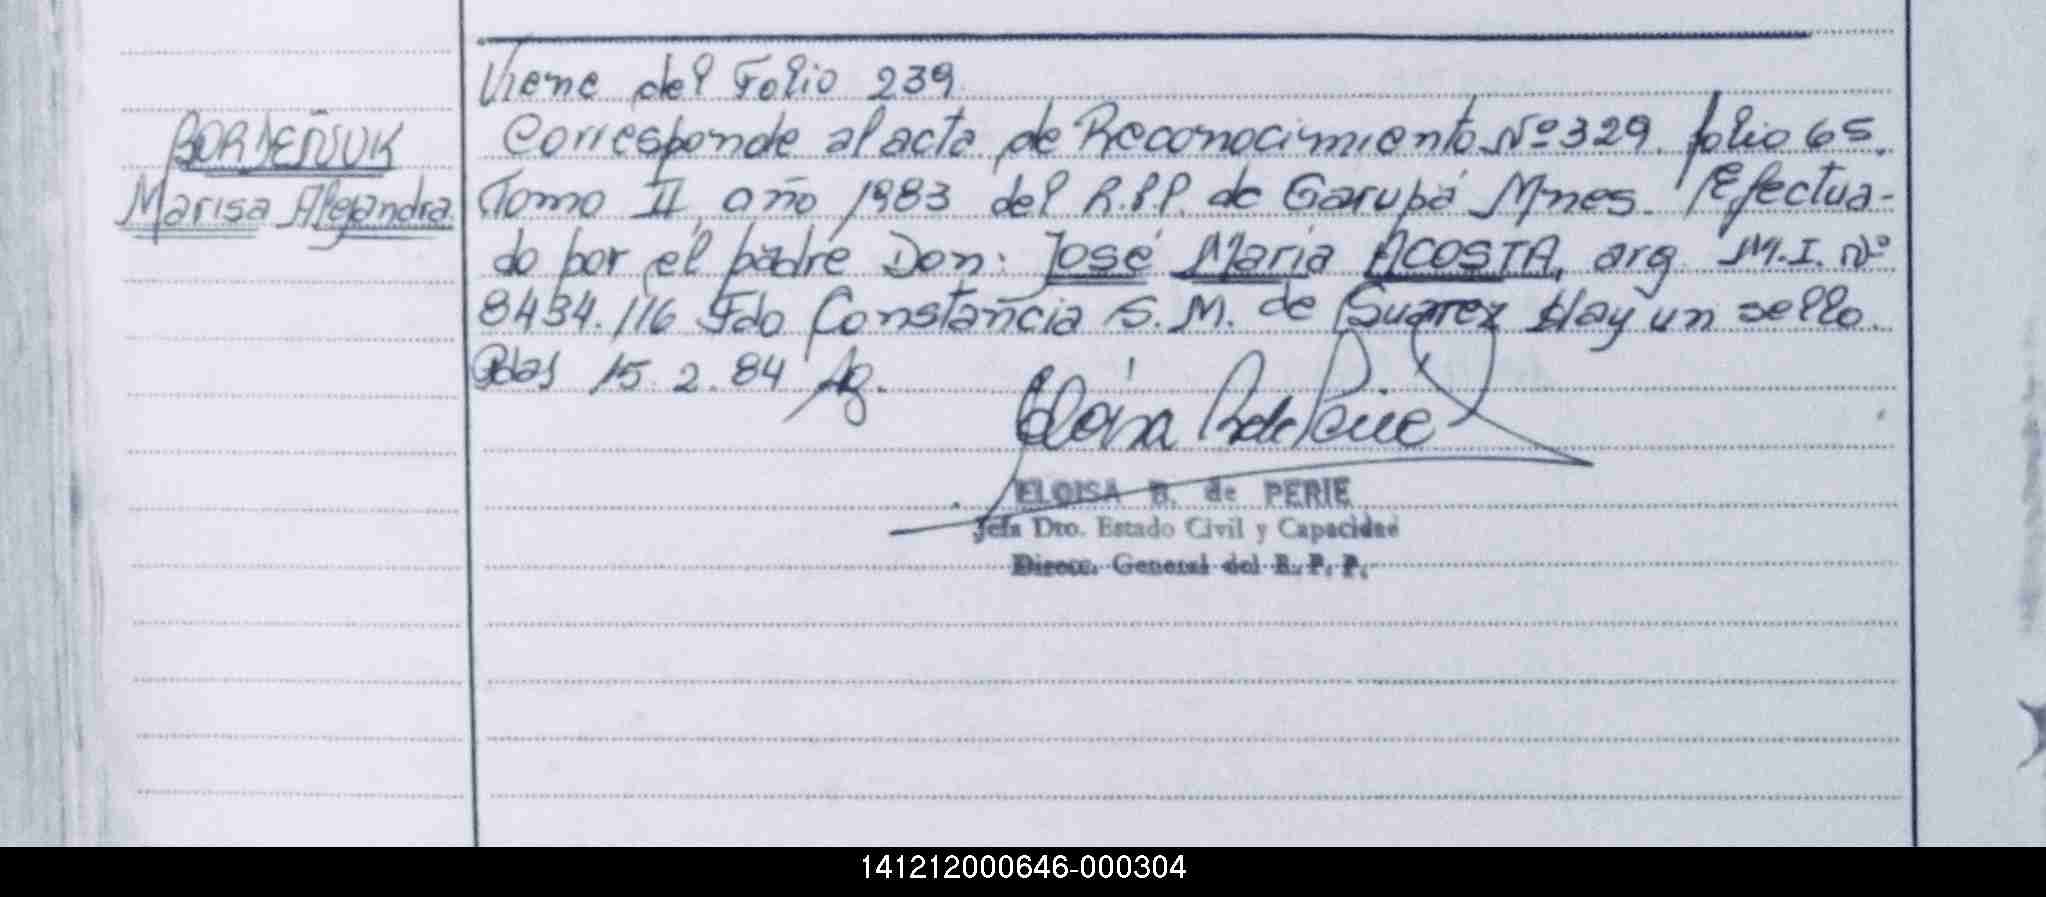 Viene del Folio 239
BORDEÑUK
Marisa Alejandra
Corresponde al acta de Reconocimiento Nº 329. folio 65.
Tomo II, año 1983 del R.P.P. de Garupá Mnes. Efectua-
do por el padre Don: José María ACOSTA, arg. M.I. Nº
8434.116 Fdo Constancia S. M. de Suarez Hay un sello.
Pdas 15.2.84
ELOISA B. de PERIE
Jefa Dto. Estado Civil y Capacidad
Direcc. General del R. P. P.
141212000646-000304